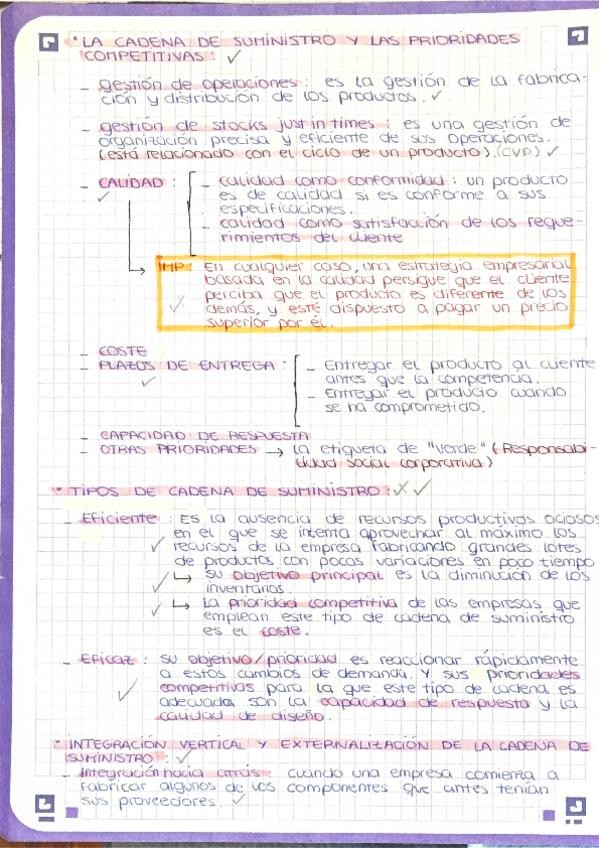 • LA CADENA DE SUMINISTRO Y LAS PRIORIDADES
COMPETITIVAS : ✓
– gestión de operaciones : es la gestión de la fabrica-
ción y distribución de los productos. ✓
– gestión de stocks just in times : es una gestión de
organización precisa y eficiente de sus operaciones.
(está relacionado con el ciclo de un producto). (CVP) ✓
– CALIDAD : – calidad como conformidad : un producto
✓ es de calidad si es conforme a sus
especificaciones.
– calidad como satisfacción de los reque-
rimientos del cliente
→ IMP: En cualquier caso, una estrategia empresarial
basada en la calidad persigue que el cliente
perciba que el producto es diferente de los
✓ demás, y esté dispuesto a pagar un precio
superior por él.
– COSTE
– PLAZOS DE ENTREGA : – Entregar el producto al cliente
✓ antes que la competencia.
– Entregar el producto cuando
se ha comprometido.
– CAPACIDAD DE RESPUESTA
– OTRAS PRIORIDADES → La etiqueta de "verde" (Responsabi-
lidad social corporativa)
• TIPOS DE CADENA DE SUMINISTRO : X ✓
– Eficiente : Es la ausencia de recursos productivos ociosos
en el que se intenta aprovechar al máximo los
✓ recursos de la empresa fabricando grandes lotes
de productos con pocas variaciones en poco tiempo
✓ ↳ su objetivo principal es la diminución de los
inventarios.
✓ ↳ La prioridad competitiva de las empresas que
emplean este tipo de cadena de suministro
es el coste.
– Eficaz : su objetivo/prioridad es reaccionar rápidamente
a estos cambios de demanda. Y sus prioridades
✓ competitivas para la que este tipo de cadena es
adecuada son la capacidad de respuesta y la
calidad de diseño.
• INTEGRACIÓN VERTICAL Y EXTERNALIZACIÓN DE LA CADENA DE
SUMINISTRO : ✓
– Integración hacia atrás : cuando una empresa comienza a
fabricar algunos de los componentes que antes tenían
sus proveedores. ✓